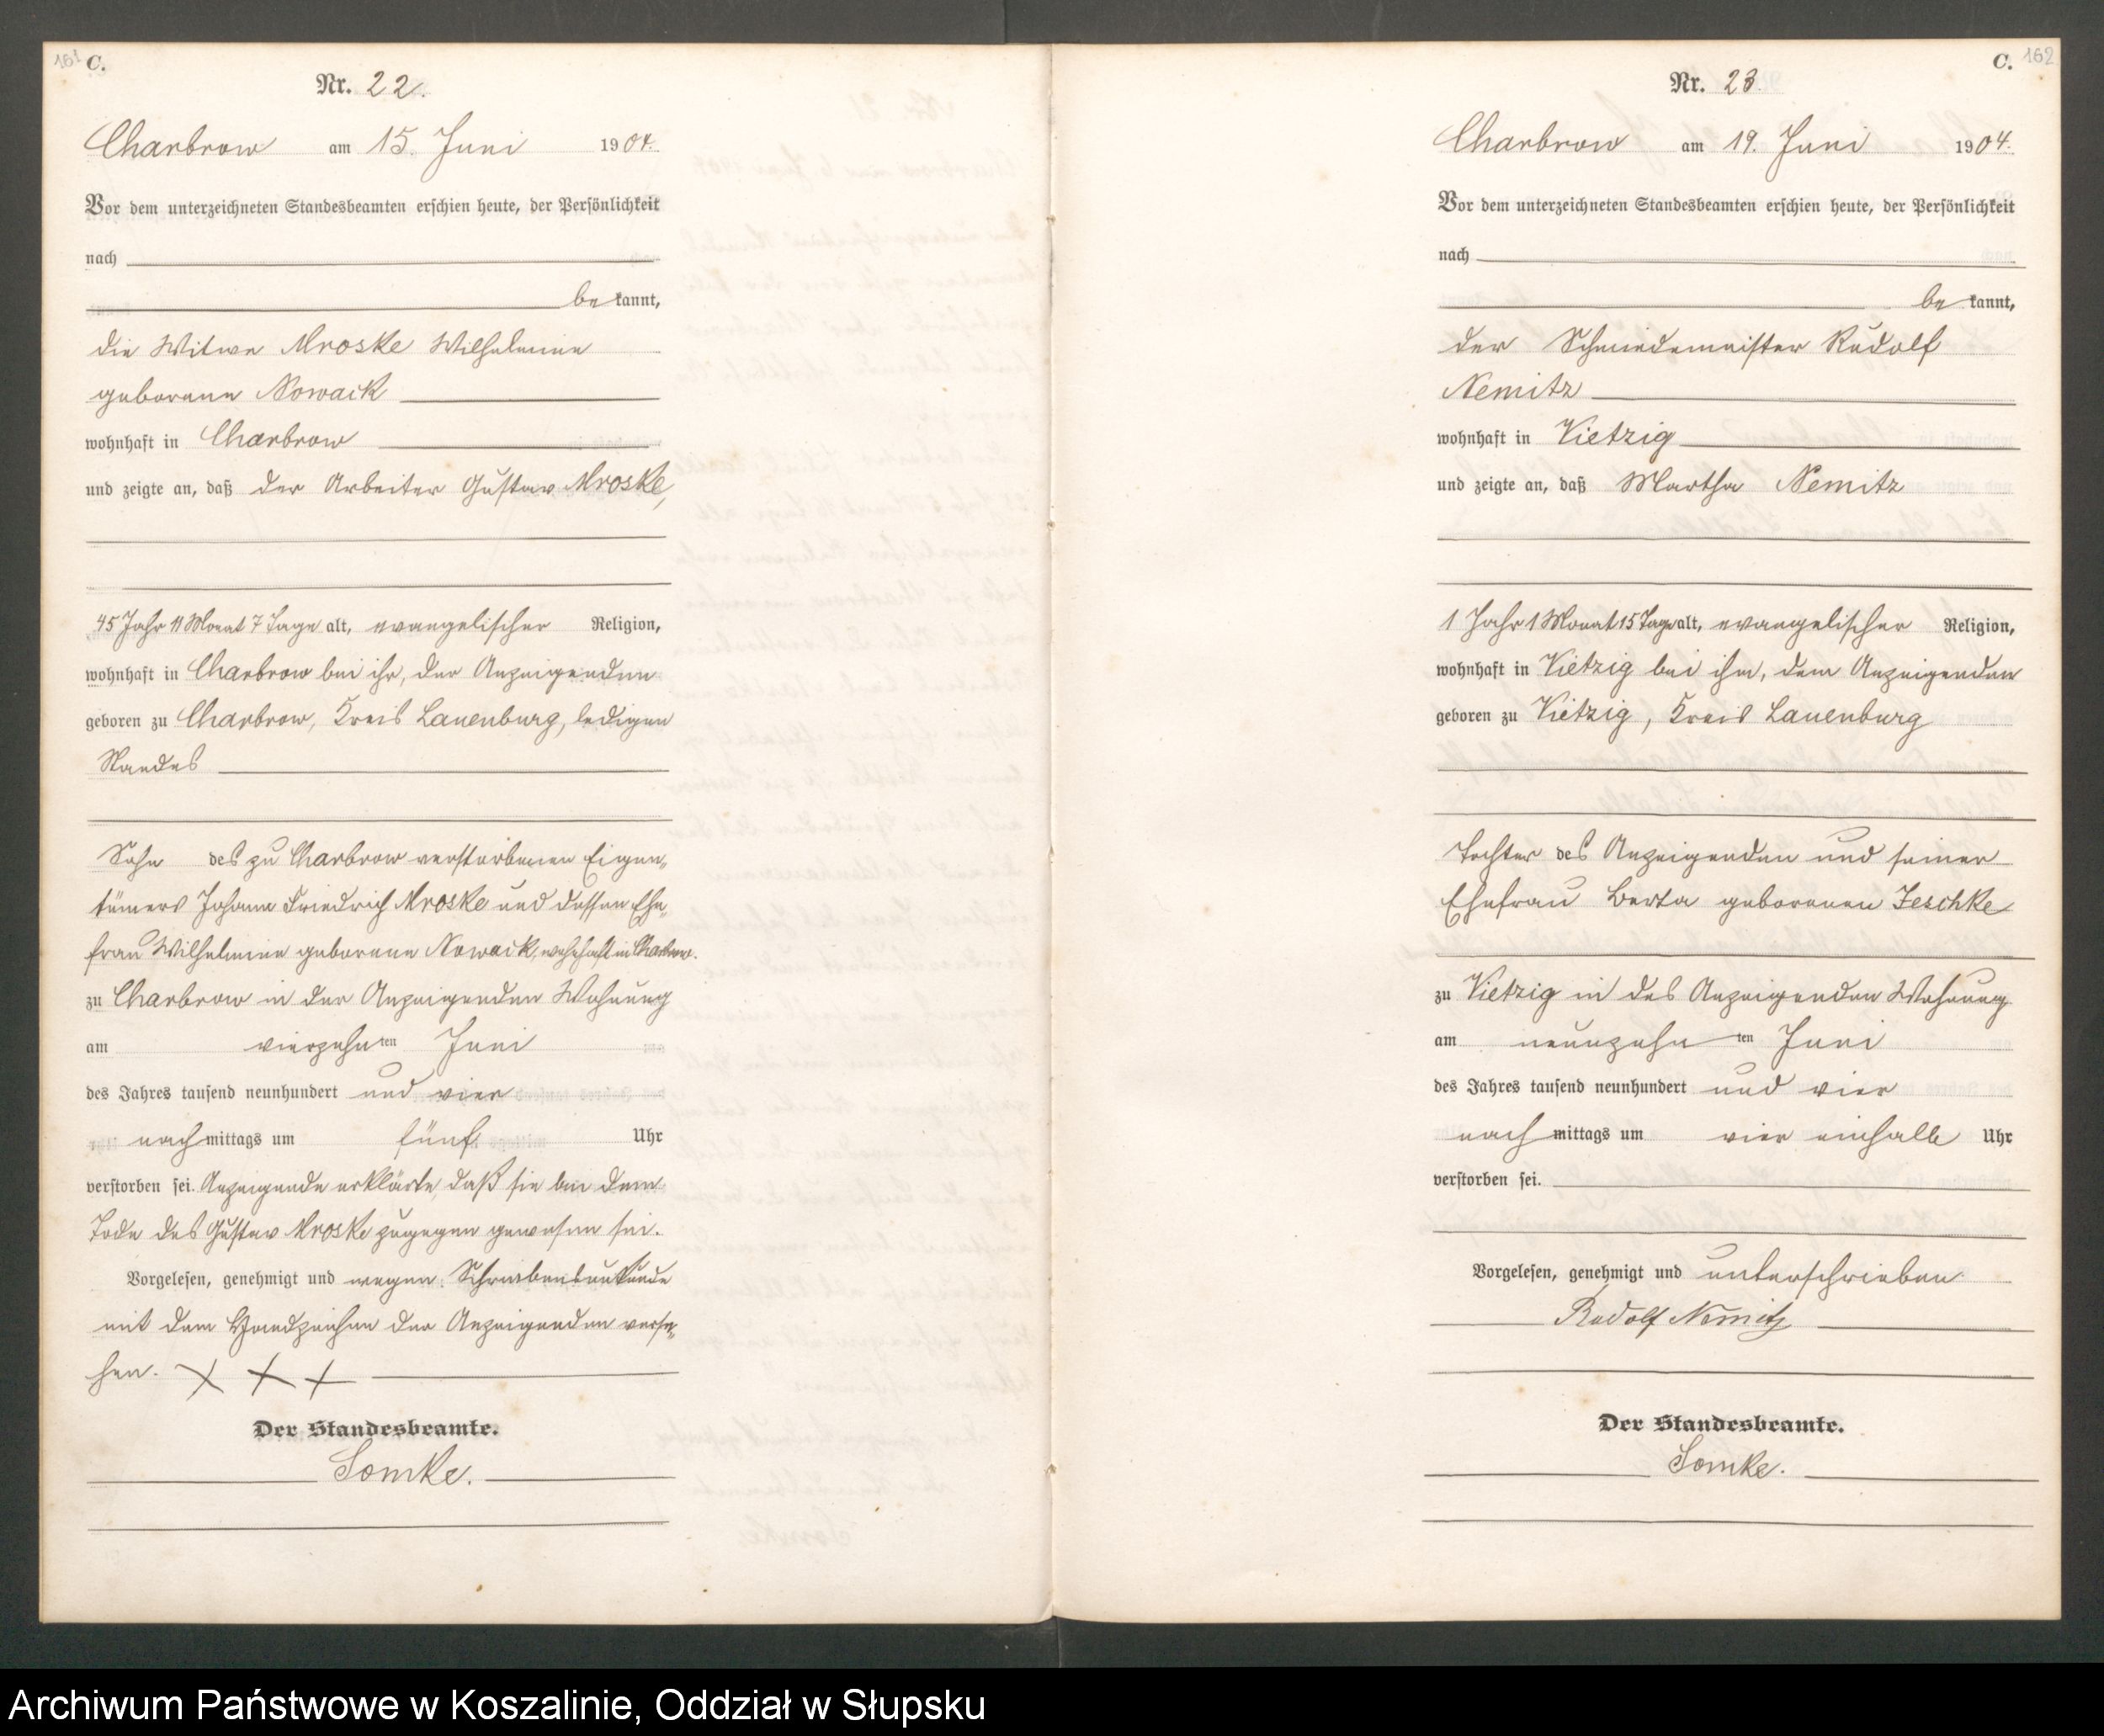 161 C.
Nr. 22.
Charbrow am 15. Juni 1904.
Vor dem unterzeichneten Standesbeamten erschien heute, der Persönlichkeit
nach
be kannt,
die Witwe Mroske Wilhelmine
geborene Nowack
wohnhaft in Charbrow
und zeigte an, daß der Arbeiter Gustav Mroske,
45 Jahr 11 Monat 7 Tage alt, evangelischer Religion,
wohnhaft in Charbrow bei ihr, der Anzeigenden
geboren zu Charbrow, Kreis Lauenburg, ledigen
Standes
Sohn des zu Charbrow verstorbenen Eigen-
tümers Johann Friedrich Mroske und dessen Ehe-
frau Wilhelmine geborene Nowack, wohnhaft in Charbrow.
zu Charbrow in der Anzeigenden Wohnung
am vierzehnten Juni
des Jahres tausend neunhundert und vier
nachmittags um fünf Uhr
verstorben sei. Anzeigende erklärte, daß sie bei dem
Tode des Gustav Mroske zugegen gewesen sei.
Vorgelesen, genehmigt und wegen Schreibensunkunde
mit dem Handzeichen der Anzeigenden verse-
hen. X X X
Der Standesbeamte.
Somke.
C. 162
Nr. 23.
Charbrow am 19. Juni 1904.
Vor dem unterzeichneten Standesbeamten erschien heute, der Persönlichkeit
nach
be kannt,
der Schmiedemeister Rudolf
Nemitz
wohnhaft in Vietzig
und zeigte an, daß Martha Nemitz
1 Jahr 1 Monat 15 Tage alt, evangelischer Religion,
wohnhaft in Vietzig bei ihm, dem Anzeigenden
geboren zu Vietzig, Kreis Lauenburg
Tochter des Anzeigenden und seiner
Ehefrau Berta geborenen Jeschke
zu Vietzig in des Anzeigenden Wohnung
am neunzehnten Juni
des Jahres tausend neunhundert und vier
nachmittags um vier einhalb Uhr
verstorben sei.
Vorgelesen, genehmigt und unterschrieben
Rudolf Nemitz
Der Standesbeamte.
Somke.
Archiwum Państwowe w Koszalinie, Oddział w Słupsku